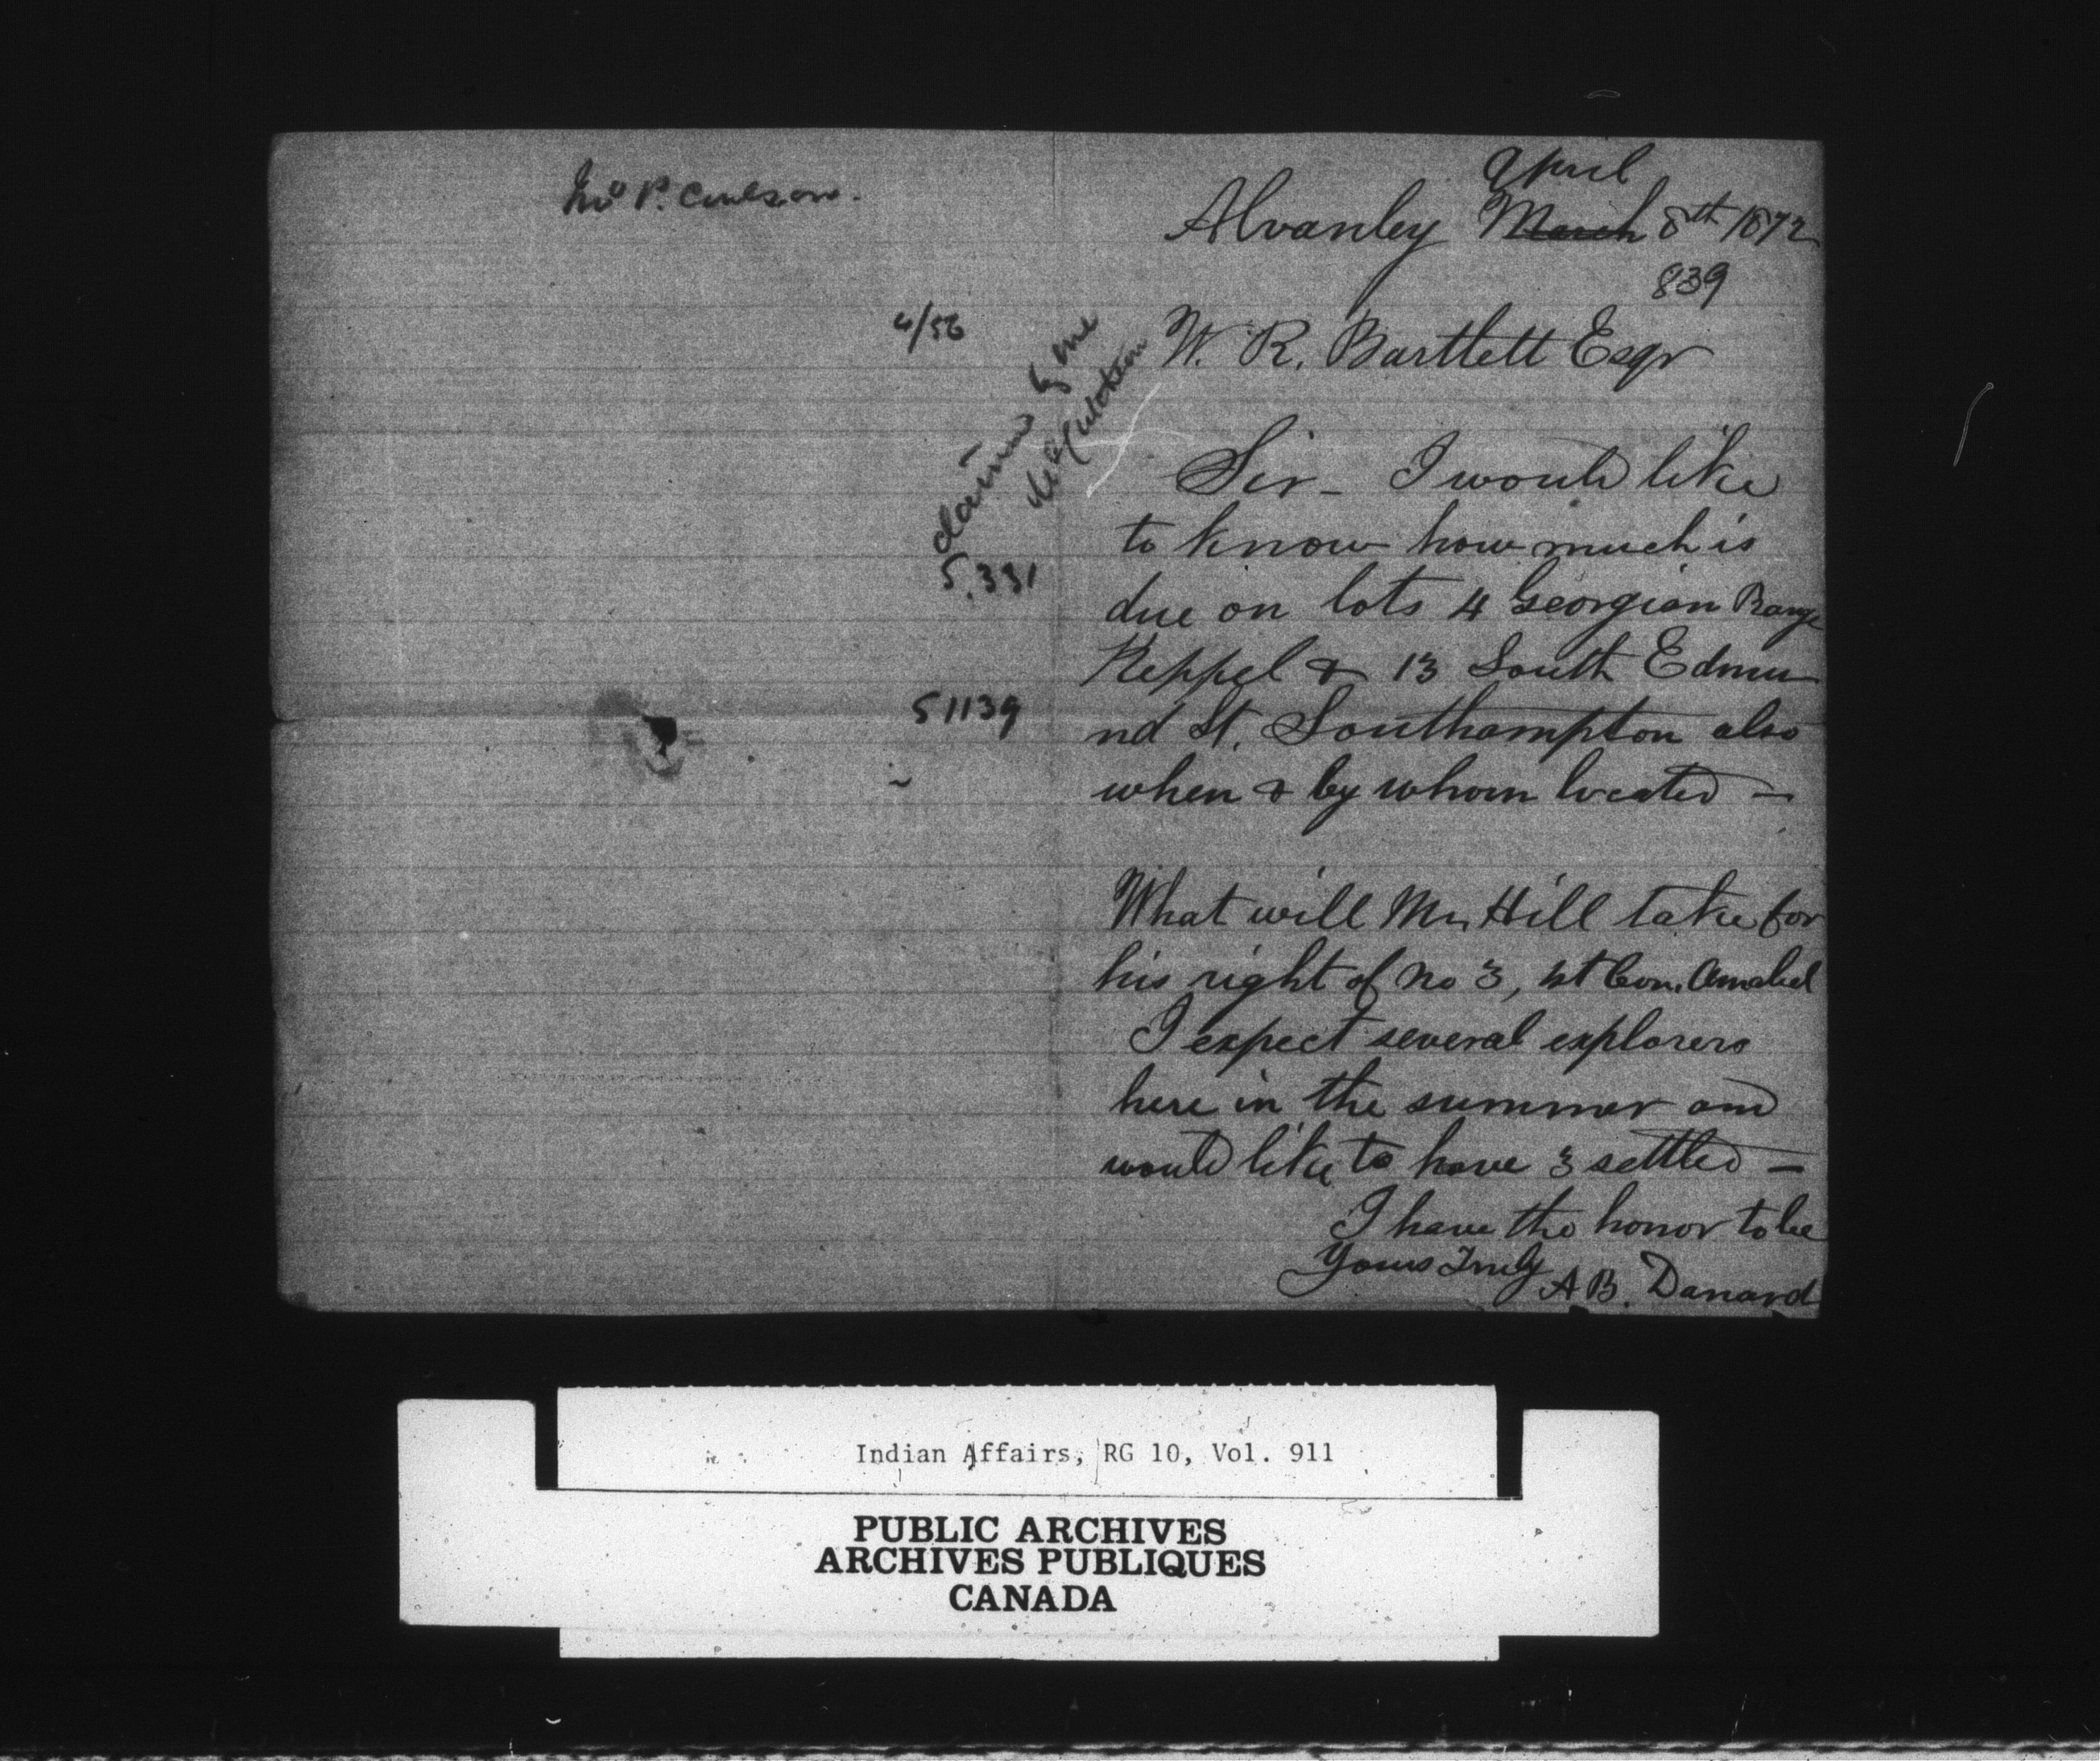 P. Coulson.
4/56
claimed by one
McCutcheon
5.331
51139
April
Alvanley March 8th 1872
839
W. R. Bartlett Esqr
Sir - I would like
to know how much is
due on lots 4 Georgian Range
Keppel & 13 South Edmu
nd St. Southampton also
when & by whom located -
What will Mr Hill take for
his right of no 3, 1st Con. Amabel
I expect several explorers
here in the summer and
would like to have 3 settled -
I have the honor to be
Yours Truly
A B. Danard
Indian Affairs, RG 10, Vol. 911
PUBLIC ARCHIVES
ARCHIVES PUBLIQUES
CANADA